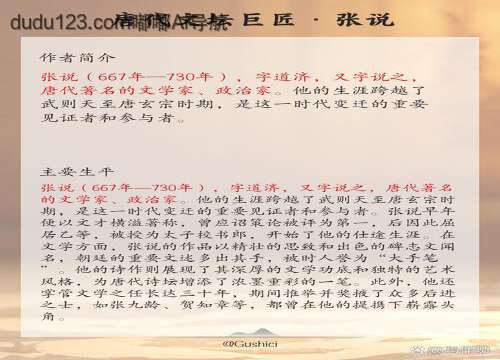 dudu123.com嘟嘟AI导航
唐代文坛巨匠·张说
作者简介
张说（667年—730年），字道济，又字说之，
唐代著名的文学家、政治家。他的生涯跨越了
武则天至唐玄宗时期，是这一时代变迁的重要
见证者和参与者。
主要生平
张说（667年—730年），字道济，又字说之，唐代著名
的文学家、政治家。他的生涯跨越了武则天至唐玄宗时
期，是这一时代变迁的重要见证者和参与者。张说早年
便以文才横溢著称，曾应诏策论被评为第一，后因此屈
居乙等，被授为太子校书郎，开始了他的仕途生涯。在
文学方面，张说的作品以精壮的思致和出色的碑志文闻
名，朝廷的重要文述多出其手，被时人誉为“大手笔
”。他的诗作则展现了其深厚的文学功底和独特的艺术
风格，为唐代诗坛增添了浓墨重彩的一笔。此外，他还
掌管文学之任长达三十年，期间推举并奖掖了众多后进
之士，如张九龄、贺知章等，都曾在他的提携下崭露头
角。
@Gushici